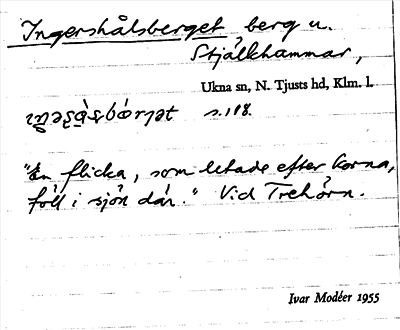 Ingershålsberget, berg u.
Stjälkhammar,
Ukna sn, N. Tjusts hd, Klm. l.
s. 118.
"En flicka, som letade efter korna,
föll i sjön där." Vid Trehörn.
Ivar Modéer 1955